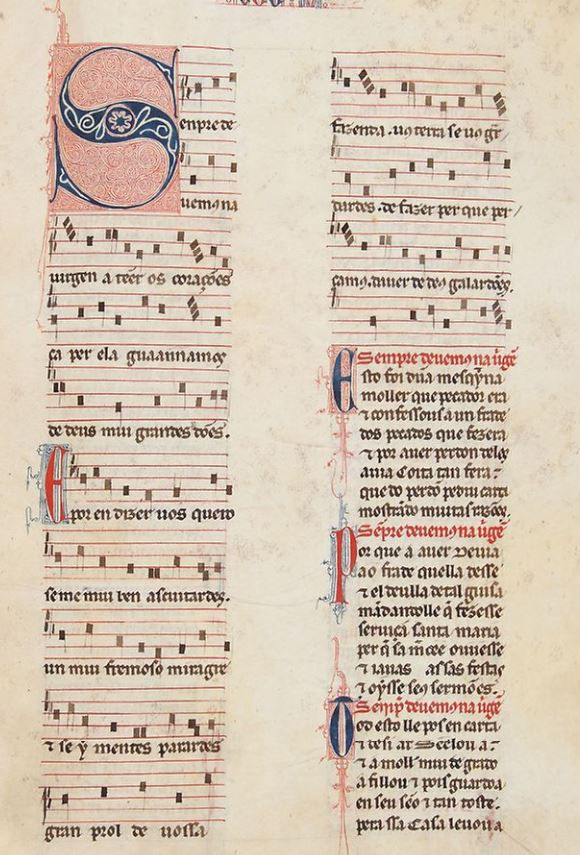 Senpre de
uemos na
uirgen a teer os corações
ca per ela guaannamos
de deus mui grandes dões.
E por en dizer uos quero
se me mui ben ascuitardes.
un mui fremoso miragre
⁊ se y mentes parardes
gran prol de uossa
fazenda . uos terra se uos gr
dardes . de fazer per que per
çamos . dauer de deus galardões.
Sempre deuemos na uirgẽ
Esto foi dũa mesqỹna
moller que pecador era
⁊ confessousa un frate
dos pecados que fezera
⁊ por auer perdon deles
auia Coita tan fera :
que do perdõ pediu carta
mostrãdo muitas razões.
Sẽpre deuemos na uirgẽ
Por que a auer deuia
ao frade quella desse
⁊ el deulla de tal guisa
mãdandolle q̃ fezesse
seruiça santa maria
per q̃ sa mercee ouuesse
⁊ iaiũas as sas festas
⁊ oysse seus sermões.
Sempre deuemos na uirgẽ
Tod esto lle pos en carta
a moll mui de grato
a fillou ⁊ pois guardoa
en seu sẽo ⁊ tan toste.
pera ssa Casa leuoua